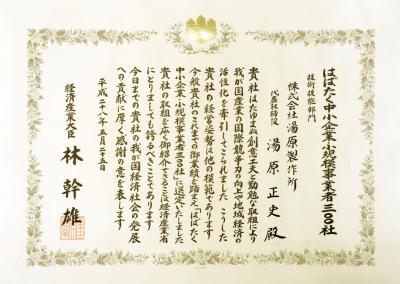 はばたく中小企業・小規模事業者三〇〇社
技術技能部門
株式会社湯原製作所
代表取締役　湯原正史殿
貴社はたゆまぬ創意工夫と勤勉な取組により
我が国産業の国際競争力の向上や地域経済の
活性化を牽引してこられました　こうした
貴社の経営姿勢は他の模範であります
今般貴社のこれまでの御業績を踏まえ「はばたく
中小企業・小規模事業者三〇〇社」に選定いたしました
貴社の取組を広く御紹介できることは経済産業省
にとりましても誇るべきことであります
今日までの貴社の我が国経済社会の発展
への貢献に厚く感謝の意を表します
平成二十八年五月二十五日
経済産業大臣　林幹雄